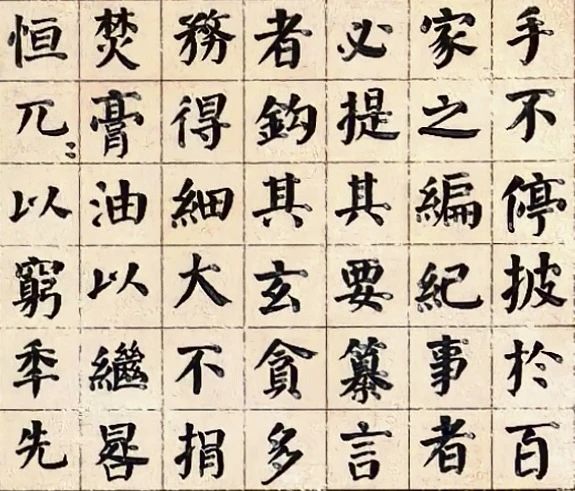 手不停披於百
家之編紀事者
必提其要纂言
者鈎其玄貪多
務得細大不捐
焚膏油以繼晷
恒兀〻以窮秊先